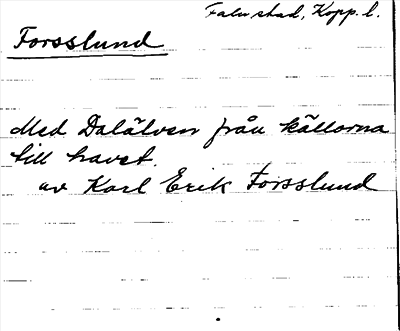 Falu stad, Kopp. l.
Forsslund
Med Dalälven från källorna
till havet.
av Karl Erik Forsslund